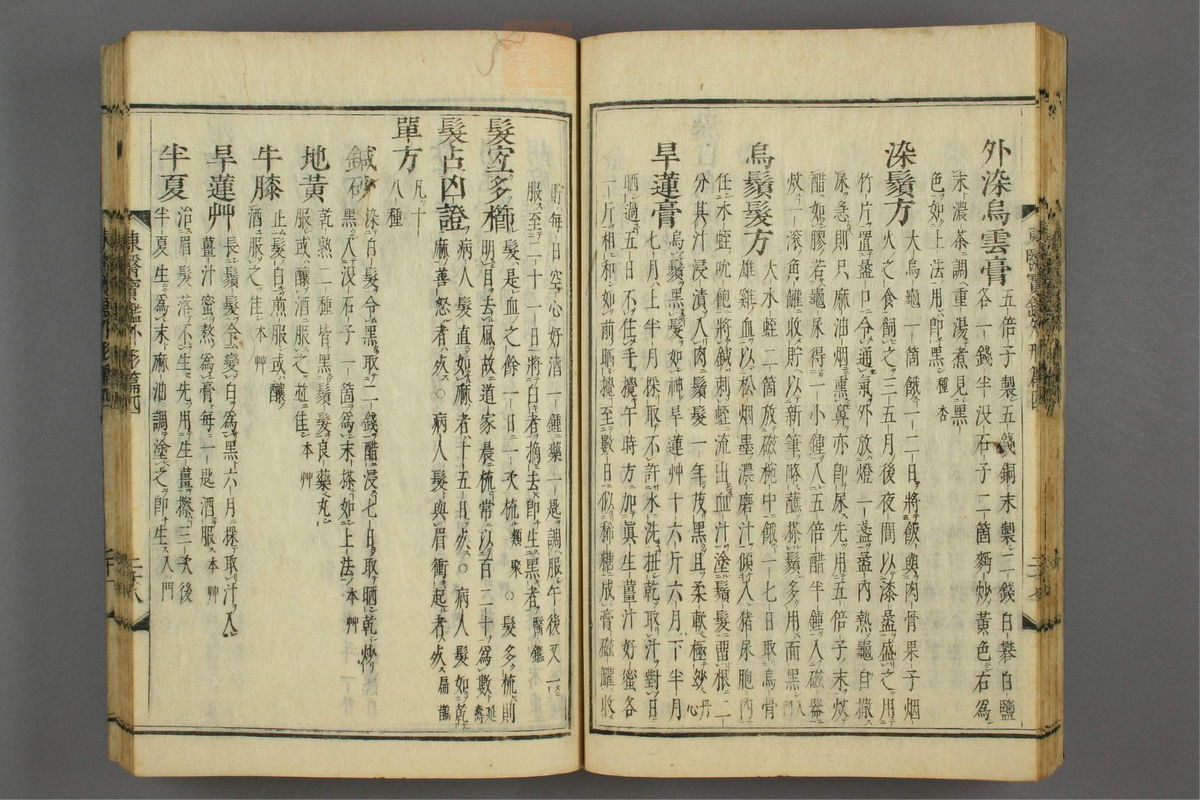 外染烏雲膏五倍子製五錢銅末製二錢白礬白鹽
各一錢半沒石子二箇麪炒黃色右爲
末濃茶調重湯煮見黑
色如上法用卽黑種杏
染鬚方大烏龜一箇餓一二日將飯與肉骨果子烟
火之食飼之三五月後夜間以漆盝盛之用
竹片置盝口令通氣外放燈一盞盝內熱龜自撒
尿急則只麻油烟熏鼻亦卽尿先用五倍子末炆
醋如膠若龜尿得一小鍾入五倍醋半鍾入磁器
炆一滾角罐收貯以新筆略蘸搽鬚多用面黑入門
烏鬚髮方大水蛭二箇放磁椀中餓一七日取烏骨
雄雞血以松烟墨濃磨汁傾入猪尿胞內
任水蛭吮飽將鍼刺蛭流出血汁塗鬚髮畱根二
分其汁浸漬入肉鬚髮一年茂黑且柔軟極妙丹心
旱蓮膏烏鬚黑髮如神旱蓮艸十六斤六月下半月
七月上半月採取不許水洗扭乾取汁對日
晒過五日不住手攪午時方加眞生薑汁好蜜各
一斤相和如前晒攪至數日似稀糖成膏磁罐收
貯每日空心好酒一鍾藥一匙調服午後又一
服至二十一日將白者摘去卽生黑者醫鑑
髮宜多櫛髮是血之餘一日一次梳類聚○髮多梳則
明目去風故道家晨梳常以百二十爲數延壽
髮占凶證病人髮直如麻者十五日死○病人髮如乾
麻善怒者死○病人髮與眉衝起者死扁鵲
單方凡十八種
鍼砂染白髮令黑取二錢醋浸七日取晒乾炒
黑入沒石子一箇爲末搽如上法本艸
地黃乾熟二種皆黑鬚髮良藥丸
服或釀酒服之並佳本艸
牛膝止髮白煎服或釀
酒服之佳本艸
旱蓮艸長鬚髮令變白爲黑六月採取汁入
薑汁蜜熬爲膏每一匙酒服本艸
半夏治眉髮落不生先用生薑擦三次後
半夏生爲末麻油調塗之卽生入門
東醫寶鑑外形篇四